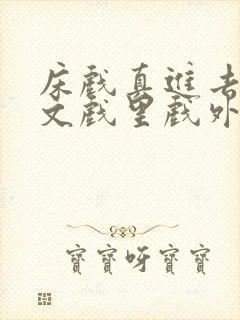 床戏真进去
文戏里戏外
宝宝呀宝宝